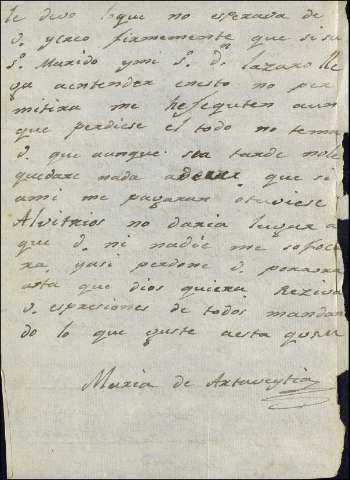 le devo lo que no esperava de
v. y creo firmemente que si su
s.r Marido y mi s.r d.n Lazaro lle
ga aentender esto no per
mitira me egequten aun
que perdiese el todo no tema
v. que aunque sea tarde no le
quedare nada a dever que si
ami me pagaran o tuviese
Alvitrios no daria lugar a
que v. ni nadie me sofoca
ra y asi perdone v. por aora
asta que dios quiera Reziva
v. espresiones de todos mandan
do lo que guste a esta que
Maria de Artaveytia